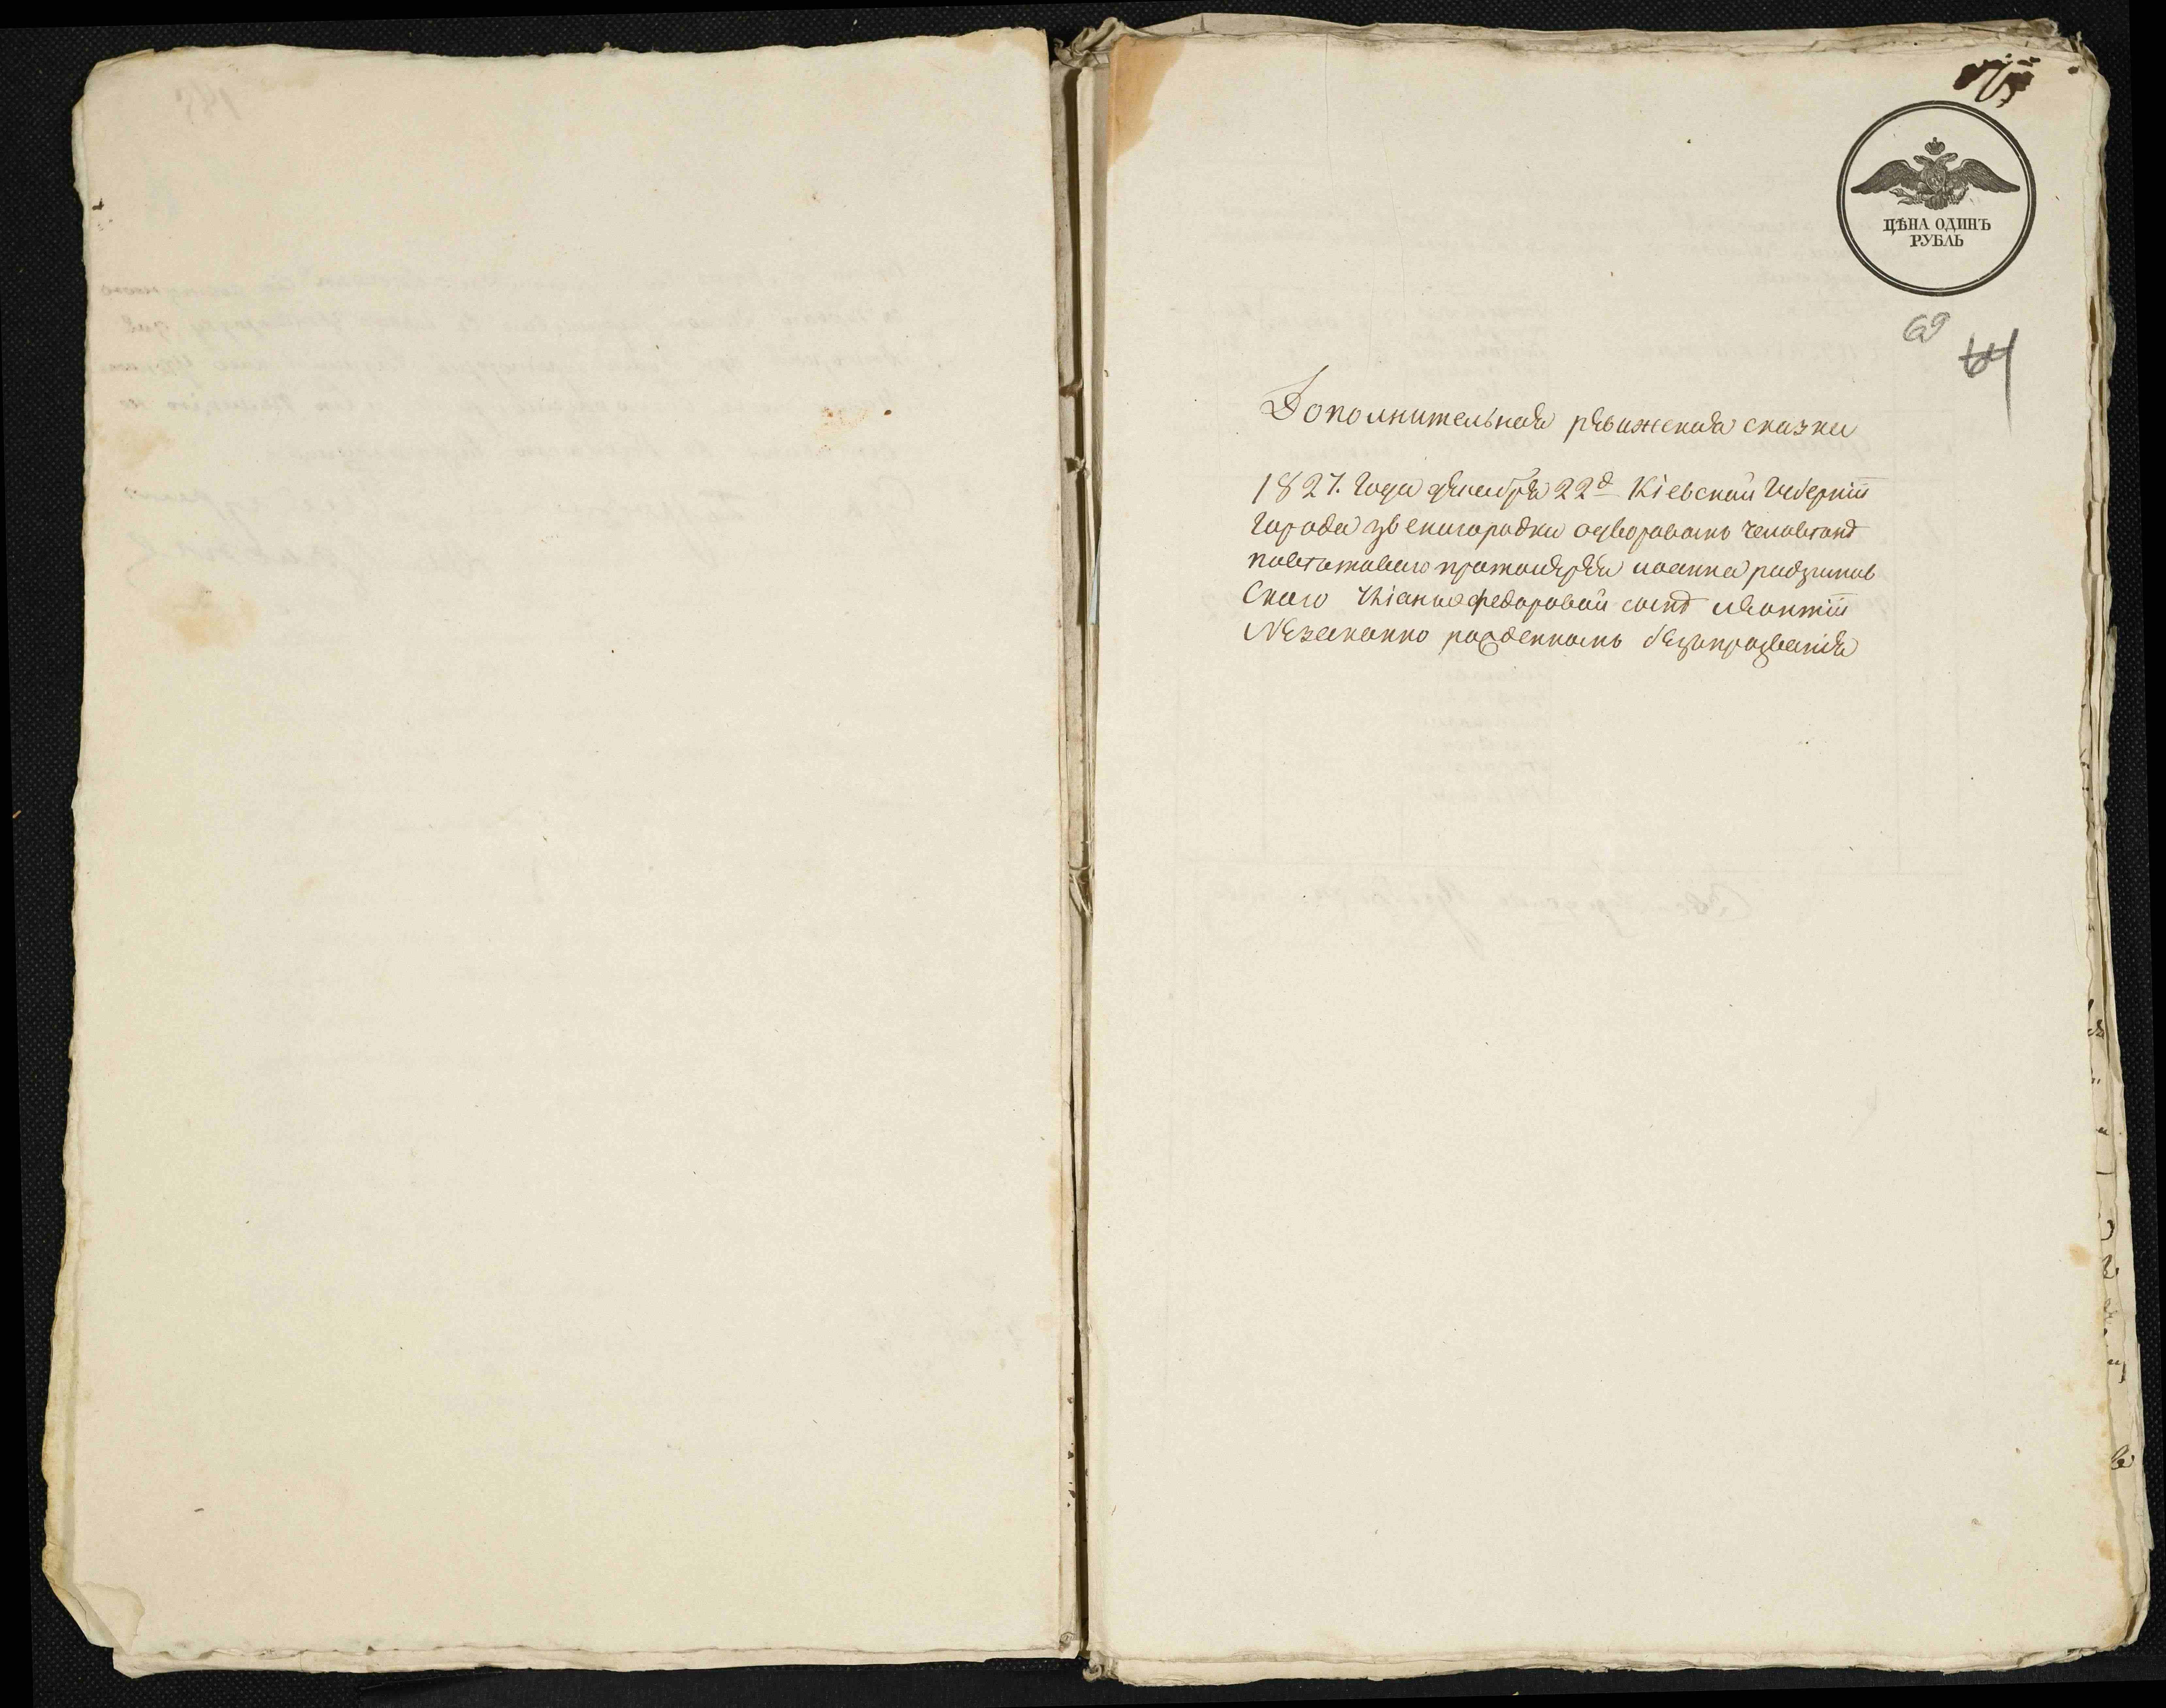 ЦѢНА ОДИНЪ
РУБЛЬ
69
61
Дополнительная ревижская сказка
1827. Года декабря 22д Кіевской Губерніи
города звенигородки одворовомъ человѣке
повѣтоваго протоиерея иоанна радзимов
Скаго федоровой сыне леонтіи
Незаконно рожденномъ безпрозванія